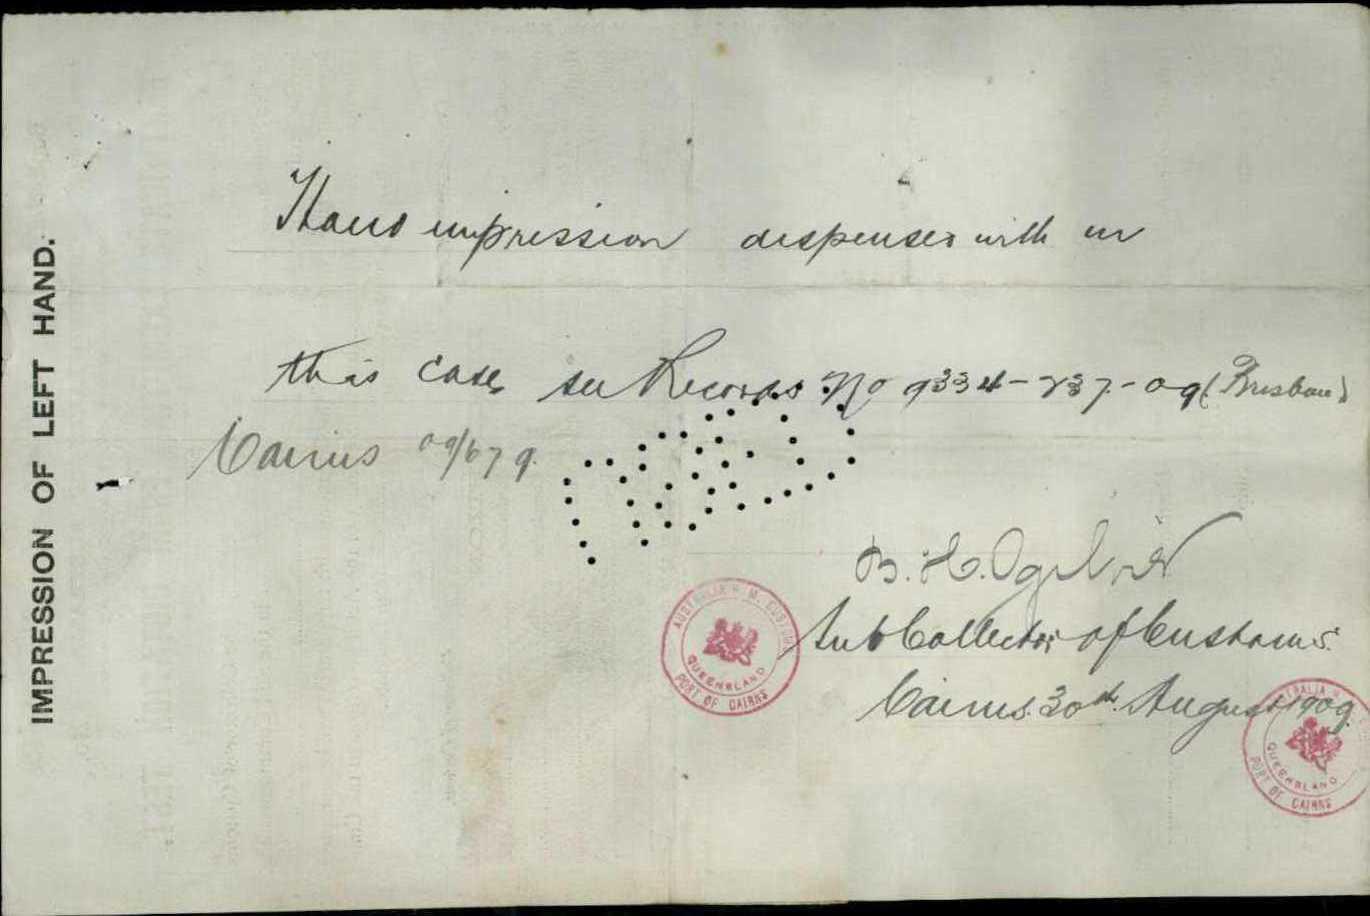 IMPRESSION OF LEFT HAND.
Hand impression dispensed with in
this case, see Records No 9334-237-09 (Brisbane)
Cairns 09/679.
B. H. Ogilvie
Sub Collector of Customs.
Cairns. 30th August 1909.
AUSTRALIA H. M. CUSTOMS
QUEENSLAND
PORT OF CAIRNS
AUSTRALIA H
QUEENSLAND
PORT OF CAIRNS